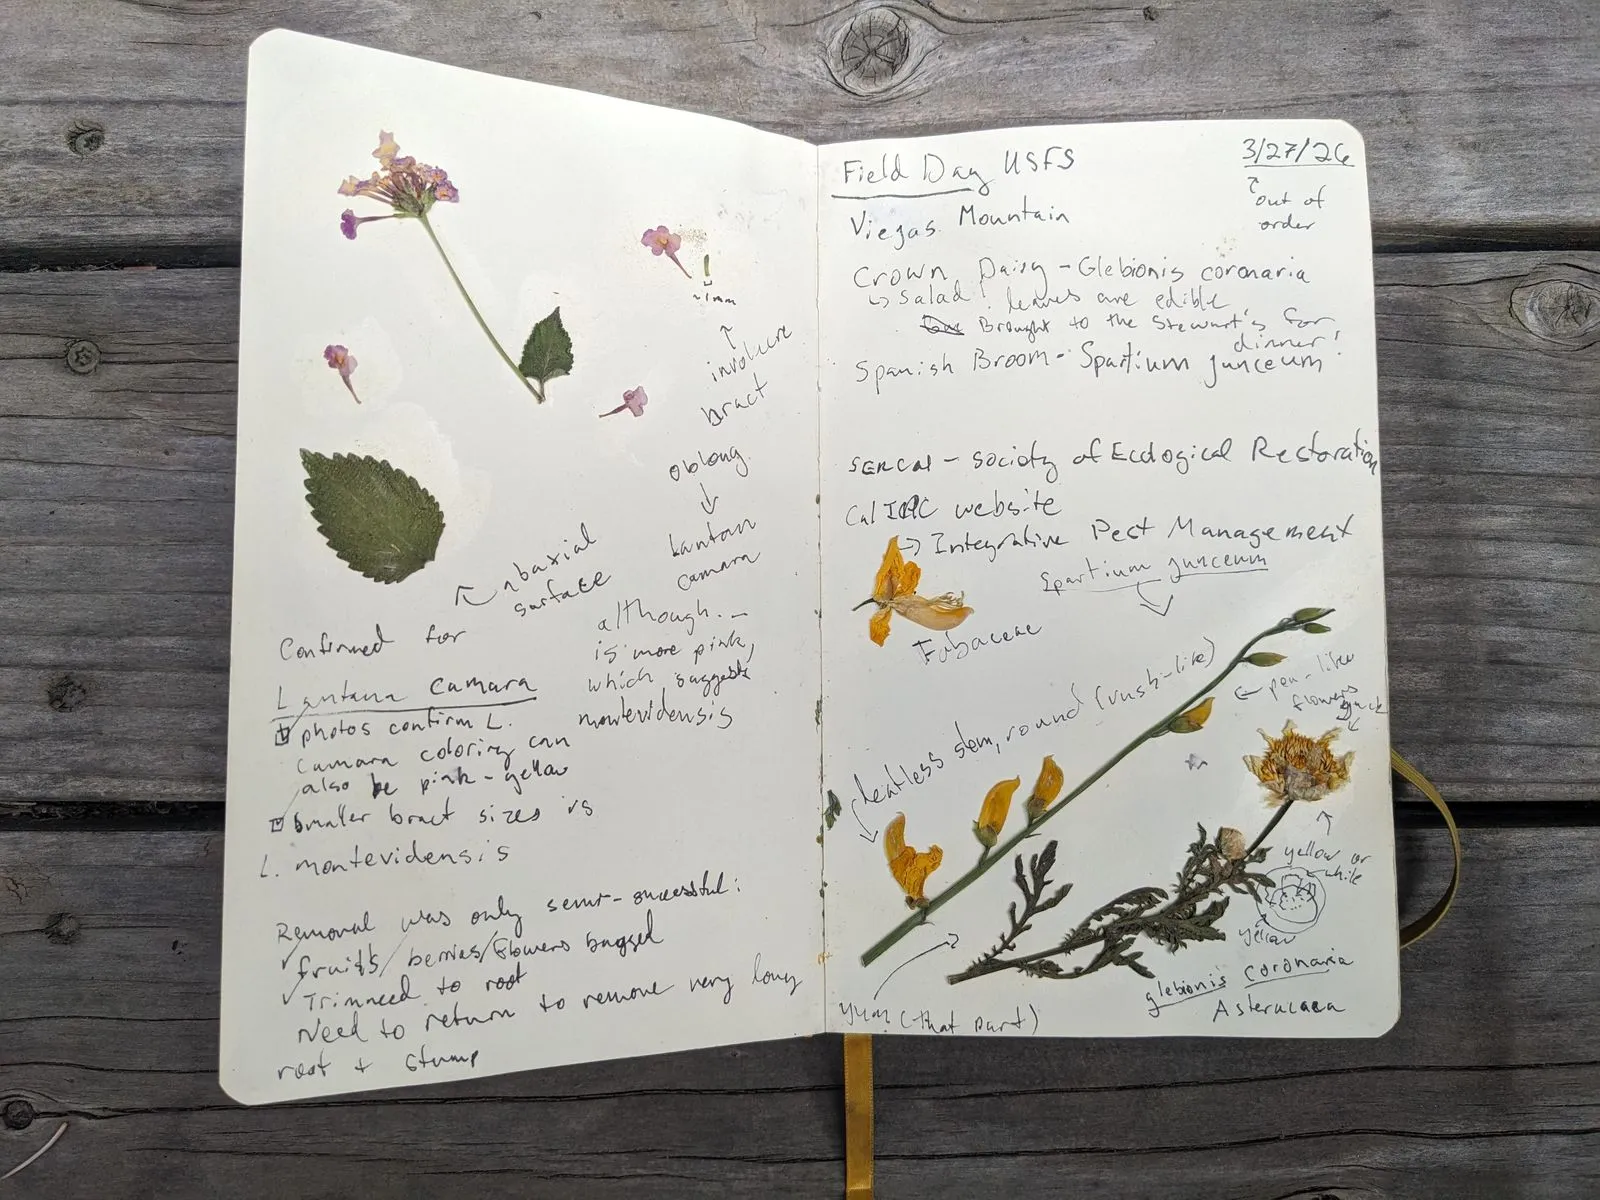 ~1mm
involucre
bract
oblong
Lantan
camara
although...
is more pink,
which suggests
montevidensis
abaxial
surface
Confirmed for
Lantana camara
photos confirm L.
camara coloring can
also be pink-yellow
smaller bract sizes is
L. montevidensis
Removal was only semi-successful:
fruits/berries/flowers bagged
Trimmed to root
Need to return to remove very long
root + stump
Field Day USFS
3/27/26
out of
order
Viejas Mountain
Crown Daisy - Glebionis coronaria
salad! leaves are edible
Brought to the Stewart's for
dinner!
Spanish Broom - Spartium junceum
SERCAL - society of Ecological Restoration
Cal IPC website
Integrative Pest Management
Spartium junceum
Fabaceae
leafless stem, round (rush-like)
pea-like
flowers
yellow or
white
yellow
glebionis coronaria
Asteracaea
yum (that part)